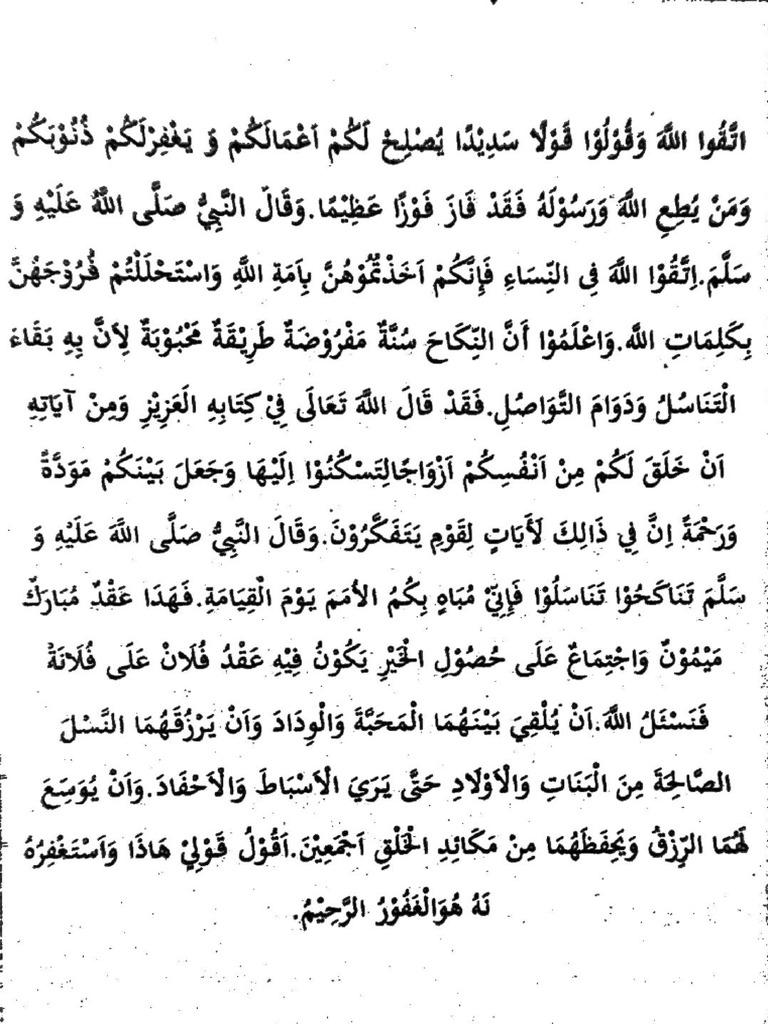 اتَّقُوا اللَّهَ وَقُوْلُوْا قَوْلًا سَدِيْدًا يُصْلِحْ لَكُمْ اَعْمَالَكُمْ وَ يَغْفِرْلَكُمْ ذُنُوْبَكُمْ
وَمَنْ يُطِعِ اللَّهَ وَرَسُوْلَهُ فَقَدْ فَازَ فَوْزًا عَظِيْمًا.وَقَالَ النَّبِيُّ صَلَّى اللَّهُ عَلَيْهِ وَ
سَلَّمَ.اِتَّقُوْا اللَّهَ فِى النِّسَاءِ فَإِنَّكُمْ اَخَذْتُمُوْهُنَّ بِاَمَةِ اللَّهِ وَاسْتَحْلَلْتُمْ فُرُوْجَهُنَّ
بِكَلِمَاتِ اللَّه.وَاعْلَمُوْا أَنَّ النِّكَاحَ سُنَّةٌ مَفْرُوْضَةٌ طَرِيْقَةٌ مَحْبُوْبَةٌ لِاَنَّ بِهِ بَقَاءَ
الْتَنَاسُلُ وَدَوَامَ التَّوَاصُلِ.فَقَدْ قَالَ اللَّهَ تَعَالَى فِيْ كِتَابِهِ الْعَزِيْزِ وَمِنْ آيَاتِهِ
اَنْ خَلَقَ لَكُمْ مِنْ اَنْفُسِكُمْ اَزْوَاجًالِتَسْكُنُوْا اِلَيْهَا وَجَعَلَ بَيْنَكُمْ مَوَدَّةً
وَرَحْمَةً اِنَّ فِي ذَالِكَ لَأَيَاتٍ لِقَوْمِ يَتَفَكَّرُوْنَ.وَقَالَ النَّبِيُّ صَلَّى اللَّهَ عَلَيْهِ وَ
سَلَّمَ تَنَاكَحُوْا تَنَاسَلُوْا فَإِنِّيْ مُبَاهٍ بِكُمُ الأُمَمَ يَوْمَ الْقِيَامَةِ.فَهَذَا عَقْدٌ مُبَارَكٌ
مَيْمُوْنٌ وَاجْتِمَاعٌ عَلَى حُصُوْلِ الْخَيْرِ يَكُوْنُ فِيْهِ عَقْدُ فُلَانْ عَلَى فُلَانَةْ
فَنَسْئَلُ اللَّهَ.اَنْ يُلْقِيَ بَيْنَهُمَا الْمَحَبَّةَ وَالْوِدَادَ وَاَنْ يَرْزُقَهُمَا النَّسْلَ
الصَّالِحَةَ مِنَ الْبَنَاتِ وَالْاَوْلَادِ حَتَّى يَرَيَ الْاَسْبَاطَ وَالْاَحْفَادَ.وَاَنْ يُوَسِعَ
لَهُمَا الرِّزْقُ وَيَحْفَظَهُمَا مِنْ مَكَائِدِ الْخَلْقِ اَجْمَعِيْنَ.اَقُوْلُ قَوْلِيْ هَاذَا وَاَسْتَغْفِرُهُ
نَهُ هُوَالْغَفُوْرُ الرَّحِيْمُ.